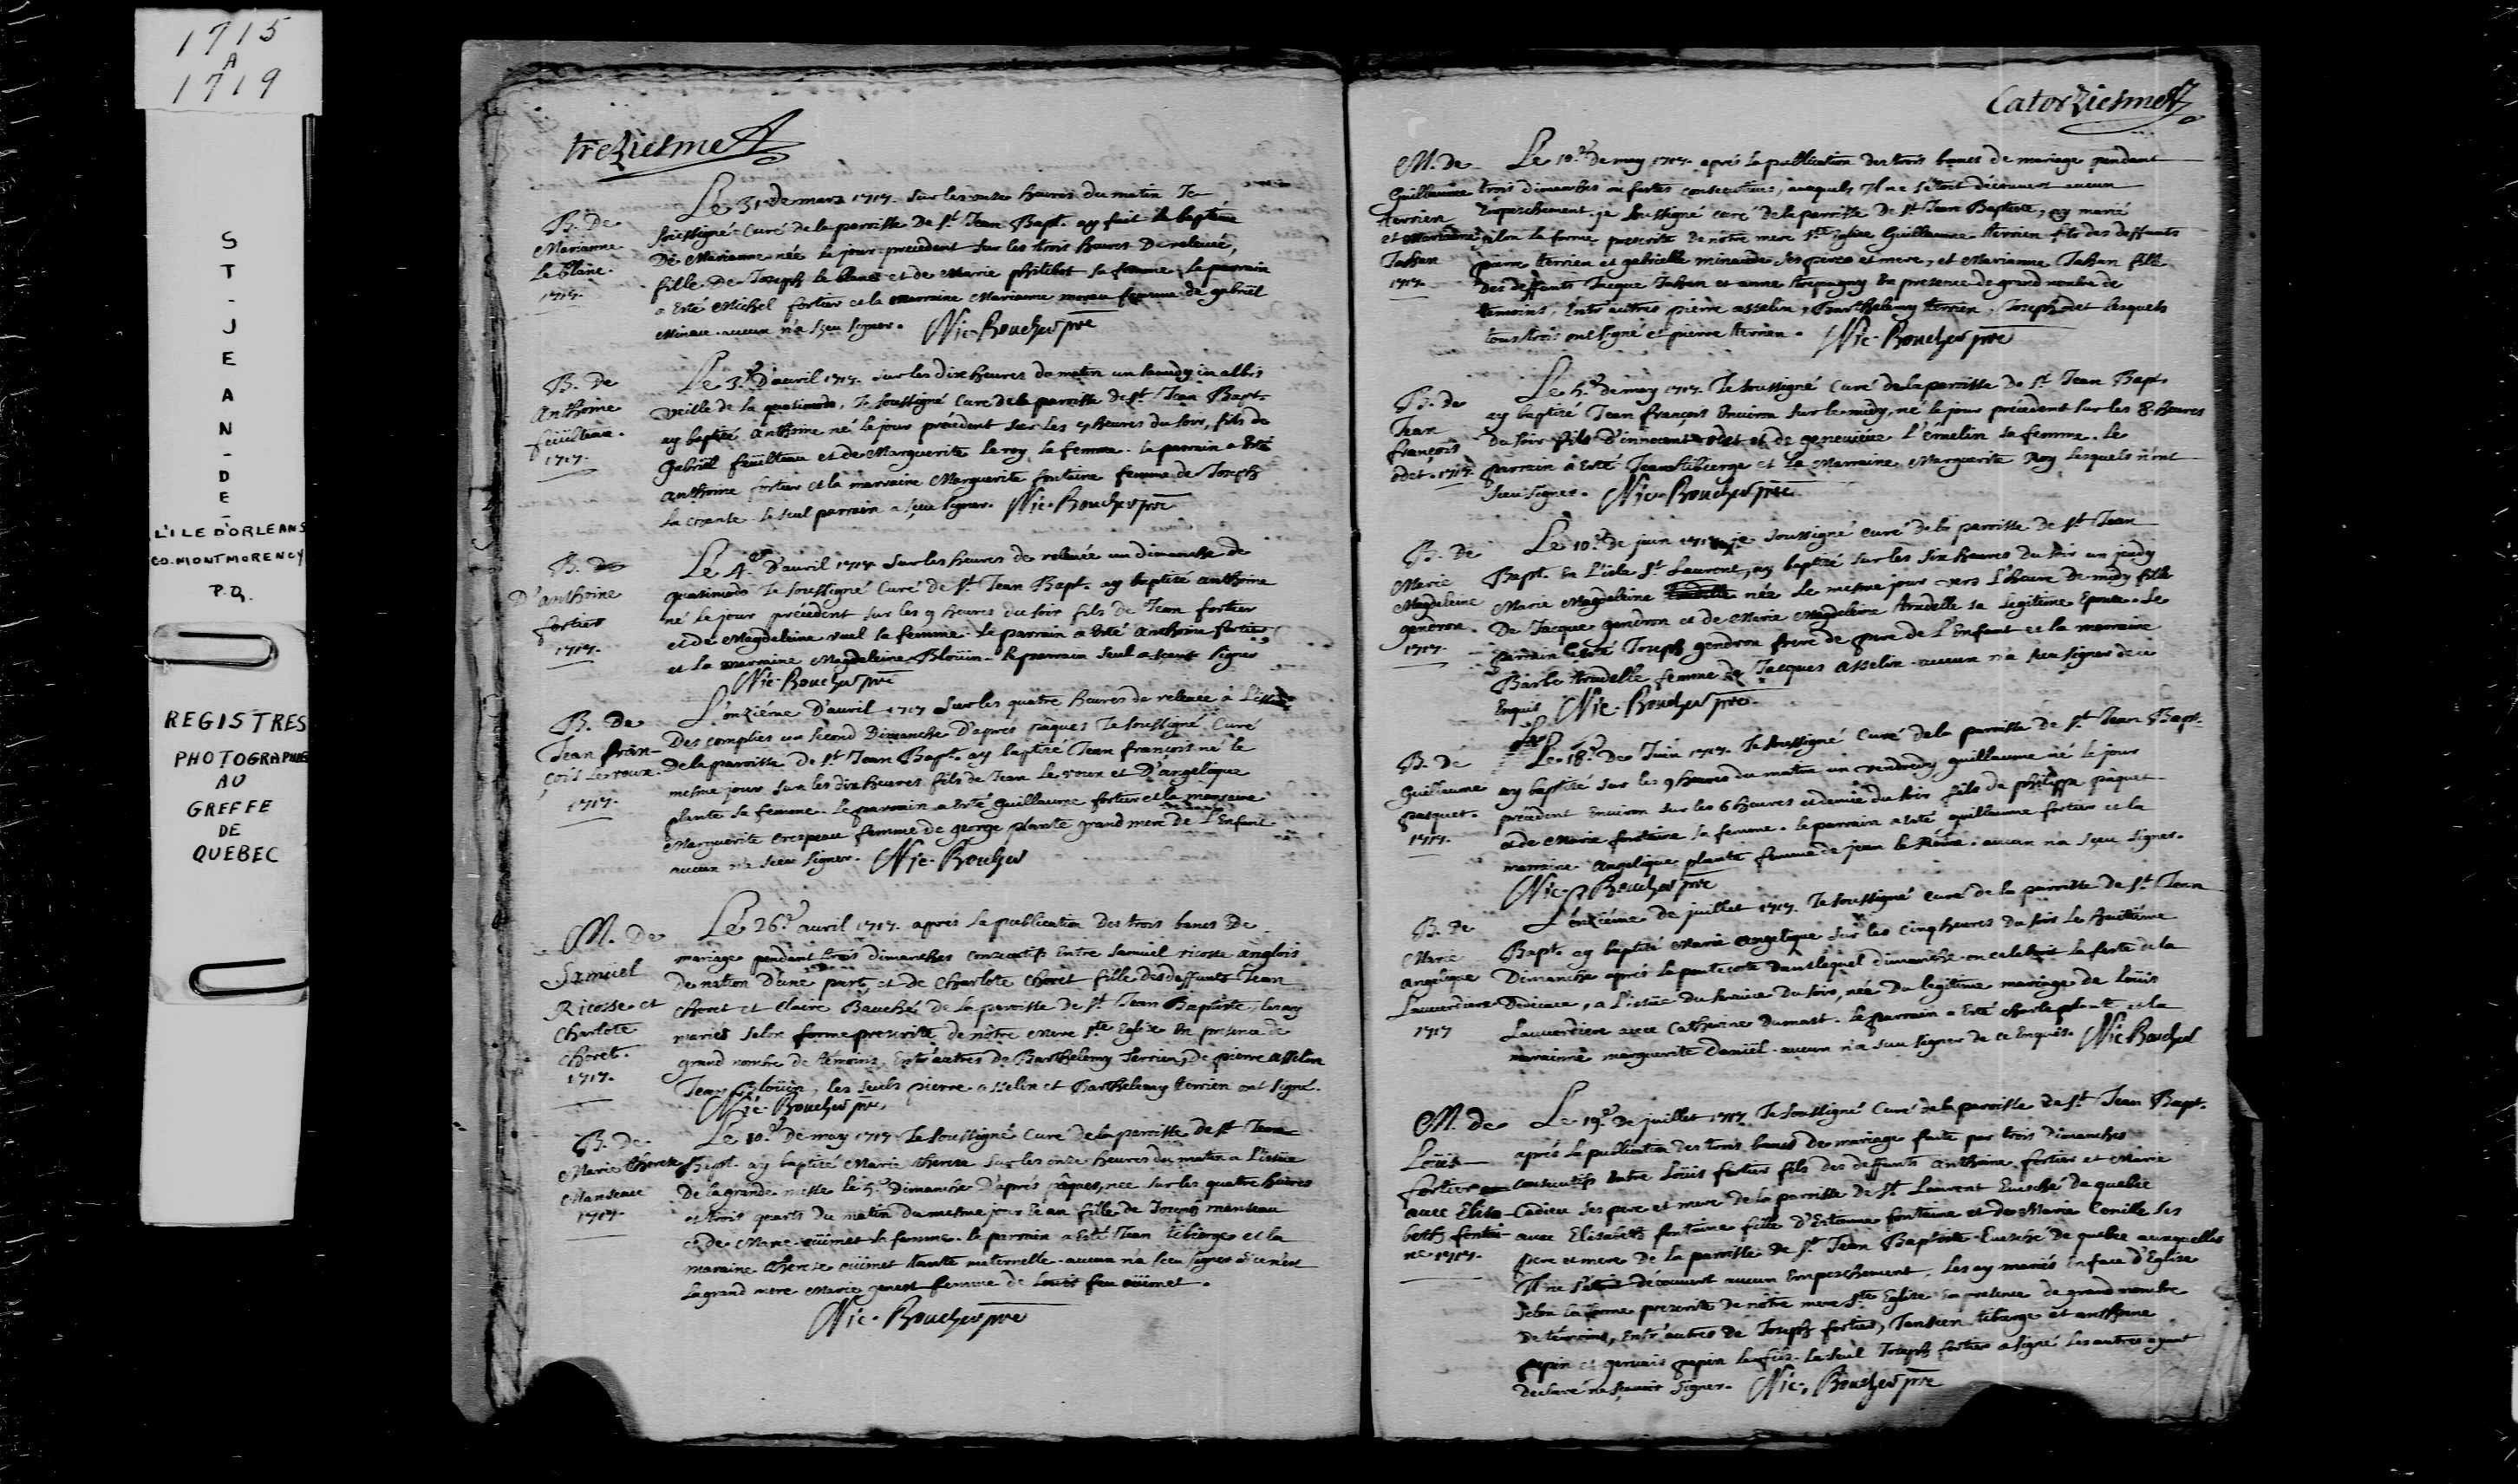 1715
A
1719
ST-JEAN-DE-
L'ILE D'ORLEANS
CO. MONTMORENCY
P.Q.
REGISTRES
PHOTOGRAPHIES
AU
GREFFE
DE
QUEBEC
treziesme
B. De
Marianne
le blanc.
1717.
Le 31e de mars 1717. sur les onze heures du matin Je
soussigné Curé de la paroisse De St Jean Bapt. ay fait le baptême
De Marianne née le jour precedent sur les trois heures De relevée,
fille De Joseph le blanc et de Marie philibot sa femme. le parrain
a Esté Michel fortier et la marraine Marianne moreau femme de gabriel
Minaux. aucun n'a sçeu signer. Nic. Boucher pre
B. de
Anthoine
feüilteau.
1717.
Le 3e D'avril 1717. sur les dix heures du matin un samedy in albis
veille de la quasimodo, Je soussigné Curé de la paroisse de St Jean Bapt.
ay baptisé Anthoine né le jour précédent sur les heures du soir, fils de
Gabriël feüilteau et de Marguerite le roy sa femme. le parrain a Esté
anthoine fortier et la marraine Marguerite fontaine femme de Joseph
la . le seul parrain a sçeu signer. Nic. Boucher pre
B. de
D'anthoine
fortier
1717.
Le 4e D'avril 1717. sur les heures de relevée un dimanche de
quasimodo Je soussigné Curé de St Jean Bapt. ay baptisé anthoine
né le jour précédent sur les 9 heures du soir fils de Jean fortier
et de Magdeleine ruel sa femme. le parrain a Esté anthoine fortier,
et la marraine Magdeleine Bloüin. le parrain seul a sçeut signer
Nic. Boucher pre
B. De
Jean fran-
çois Leroux.
1717.
L'onzième D'avril 1717 sur les quatre heures de relevée à L'issüe
Des complies un second Dimanche D'après pâques Je soussigné Curé
De la paroisse de St Jean Bapt. ay baptisé Jean françois né le
mesme jour sur les dix heures fils de Jean Le roux et D'angelique
plante sa femme. le parrain a Esté guillaume fortier et la marraine
Marguerite crespeau femme de george plante grand mere de L'Enfant
aucun n'a sçeu signer. Nic. Boucher
M. De
Samüel
Ricosse et
Charlote
Choret.
1717.
Le 26e avril 1717. après la publication Des trois bancs De
mariage pendant trois dimanches consecutifs Entre Samuel ricosse anglois
De nation D'une part, et de Charlote Choret fille des deffunts Jean
Choret et claire Bauché De la paroisse de St Jean Baptiste, les ay
mariés selon forme prescrite de nôtre Mere Ste Eglise En presence de
grand nombre de témoins, Entr'autres de Barthelemy terrien, De pierre asselin
Jean Bloüin, les seuls pierre asselin et Barthelemy terrien ont signé.
Nic. Boucher pre
B. de
Marie therese
Manseau
1717.
Le 10e De may 1717. Je soussigné Curé De la paroisse de St Jean
Bapt. ay baptisé Marie therese sur les onze heures du matin a L'issüe
De la grande messe le 5e Dimanche D'après pâques, née sur les quatre heures
et trois quarts du matin du mesme jour fille de Joseph manseau
et de Marie oüimet sa femme. le parrain a Esté Jean tibierge et la
maraine therese oüimet tante maternelle. aucun n'a sceu signer
la grand mere Marie genest femme de Louis feu oüimet.
Nic. Boucher pre
Catorziesme
M. de
Guillaume
terrien
et Marianne
Jahan
1717.
Le 10e De may 1717. après la publication des trois bancs de mariage pendant
trois dimanches ou festes consecutives, ausquels Il ne s'étoit découvert aucun
Empeschement. je soussigné curé de la paroisse de St Jean Baptiste, ay marié
selon la forme prescrite de nôtre mere Ste Eglise Guillaume terrien fils des deffunts
pierre terrien et gabrielle minaude ses pere et mere, et Marianne Jahan fille
des deffunts Jacque Jahan et anne trepagny En presence de grand nombre de
temoins, Entr'autres pierre asselin, Barthelemy terrien, Joseph lesquels
tous trois ont signé et pierre terrien. Nic. Boucher pre
B. de
Jean
françois
odet. 1717.
Le 5e De may 1717. Je soussigné Curé de la paroisse de St Jean Bapt.
ay baptizé Jean françois Environ sur le midy, né le jour précédent sur les 8. heures
Du soir fils D'innocent odet et de geneviéve L'émelin sa femme. le
parrain a Esté Jean tibierge et la Marraine Marguerite Roy lesquels n'ont
sceu signer. Nic. Boucher pre
B. De
Marie
Magdeleine
gendron.
1717.
Le 10e De juin 1717 je soussigné curé de la paroisse de St Jean
Bapt. En L'isle St Laurent, ay baptisé sur les six heures du soir un jeudy
Marie Magdeleine née Le mesme jour vers L'heure de midy fille
De Jacque gendron et de Marie Magdeleine trudelle sa legitime Epouse. Le
parrain Esté Joseph gendron frere de pere de L'Enfant et la marraine
Barbe trudelle femme de Jacques asselin. aucun n'a sceu signer de ce
Enquis Nic. Boucher pre
B. De
Guillaume
pasquet.
1717.
Le 18e De Juin 1717. Je soussigné Curé de la paroisse de St Jean Bapt.
ay baptisé sur les 9 heures du matin un vendredy guillaume né le jour
précedent Environ sur les 6 heures et demie du soir fils de philippe pâquet
et de Marie fontaine sa femme. le parrain a esté guillaume fortier et la
marraine Angelique plante femme de jean le . aucun n'a sçeu signer.
Nic. Boucher pre
B. De
Marie
Angelique
Lauverdiere
1717
L'onzième de juillet 1717. Je soussigné curé de la paroisse de St Jean
Bapt. ay baptisé Marie Angelique sur les cinq heures du soir le huitième
Dimanche après la pentecoste Dans lequel dimanche on celebroit la feste de la
Dedicace, a L'issüe Du service du soir, née Du legitime mariage de Loüis
Lauverdiere avec Catherine Dumast. le parrain a Esté charle plante et la
marraine marguerite Daniël. aucun n'a sceu signer de ce Enquis. Nic. Boucher
M. de
Loüis
fortier
avec Elisa-
beth fontai-
ne 1717.
Le 19e De juillet 1717 Je soussigné Curé de la paroisse de St Jean Bapt.
après la publication des trois bancs de mariage faite par trois dimanches
consecutifs Entre Loüis fortier fils des deffunts anthoine fortier et Marie
Cadieu ses pere et mere de la paroisse de St Laurent Evesché de quebec
avec Elisabeth fontaine fille D'Estienne fontaine et de Marie Conille ses
pere et mere de la paroisse de St Jean Baptiste Evesché de quebec auxquelles
Il ne s'étoit découvert aucun Empeschement, les ay mariés En face d'Eglise
selon la forme prescrite de nôtre mere Ste Eglise En presence de grand nombre
De témoins, Entr'autres de Joseph fortier, tibierge et anthoine
pepin et gervais pepin . le seul Joseph fortier a signé les autres ayant
Declaré ne sçavoir signer. Nic. Boucher pre